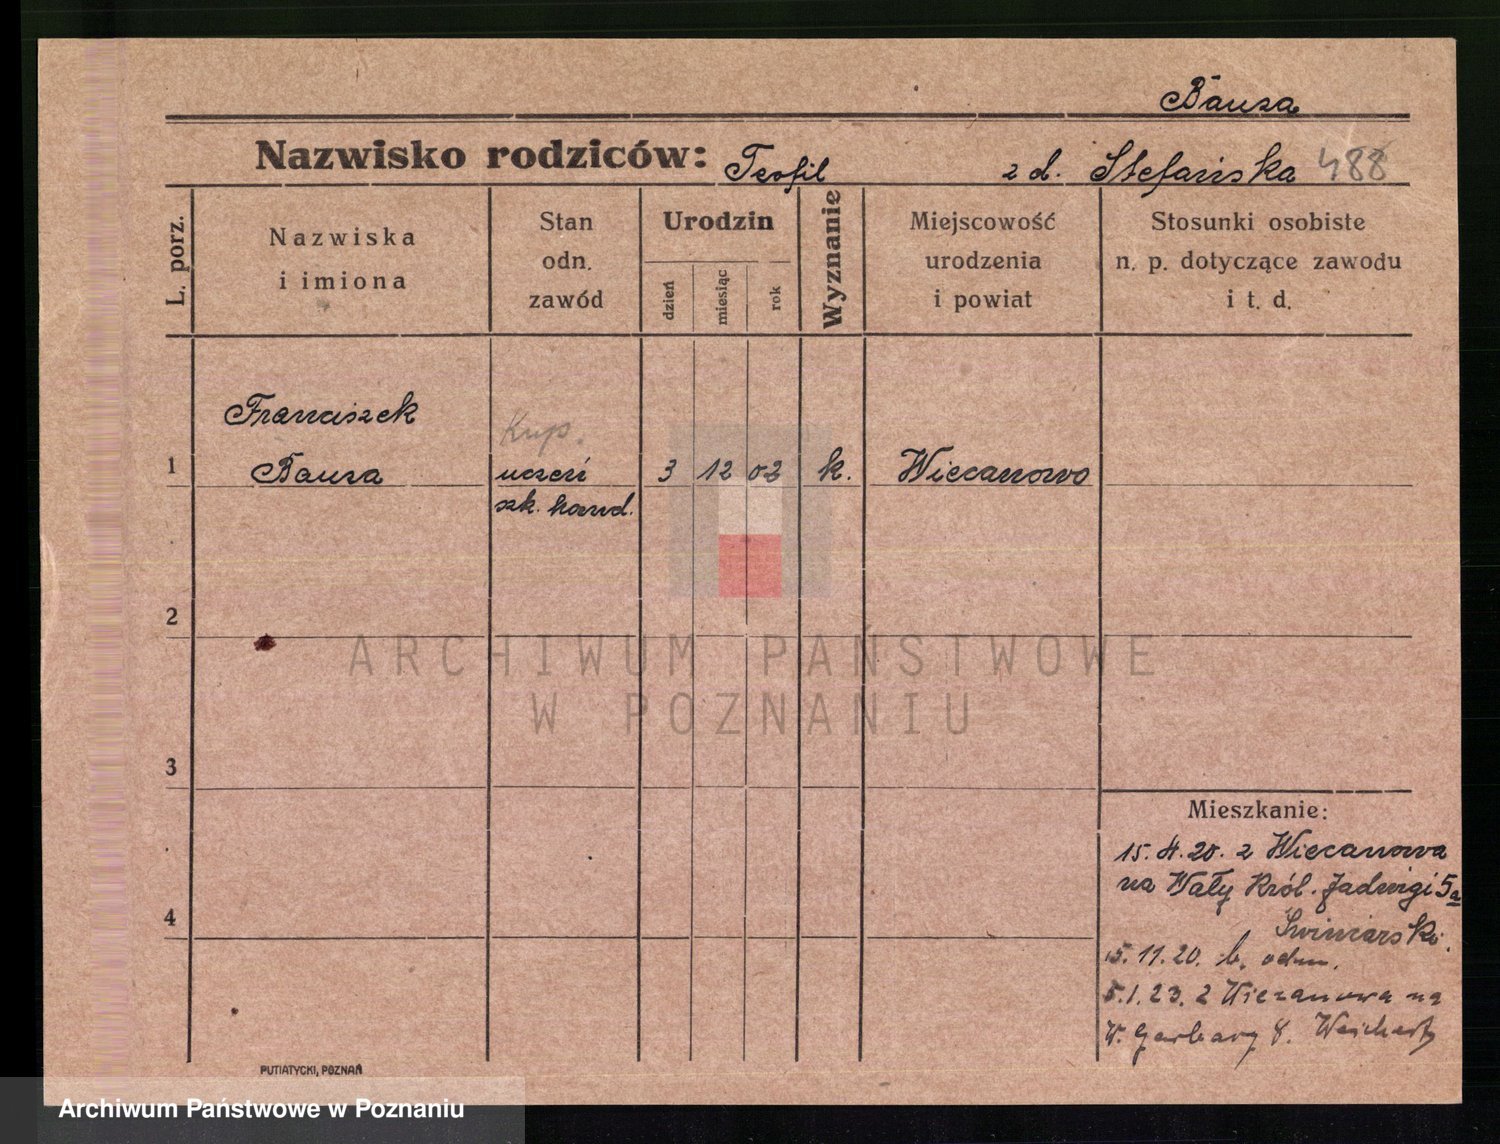 Bauza
Nazwisko rodziców: Teofil z d. Stefańska 488
L. porz.
Nazwiska
i imiona
Stan
odn.
zawód
Urodzin
dzień
miesiąc
rok
Wyznanie
Miejscowość
urodzenia
i powiat
Stosunki osobiste
n. p. dotyczące zawodu
i t. d.
Franciszek
Kup.
1 Bauza uczeń 3 12 02 k. Wiecanowo
szk. hand.
2
ARCHIWUM PAŃSTWOWE
W POZNANIU
3
Mieszkanie:
15. 4. 20. z Wiecanowa
na Wały Król. Jadwigi 5a
4
Świniarski.
15. 11. 20. b. odm.
5. 1. 23. z Wiecanowa na
W. Garbary 8. Weichert
PUTIATYCKI, POZNAŃ
Archiwum Państwowe w Poznaniu